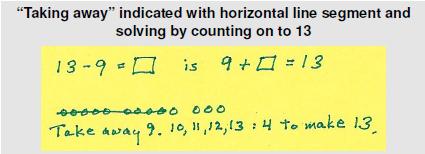 “Taking away” indicated with horizontal line segment and
solving by counting on to 13
13 - 9 = □ is 9 + □ = 13
ooooo ooooo ooo
Take away 9. 10, 11, 12, 13 : 4 to make 13.